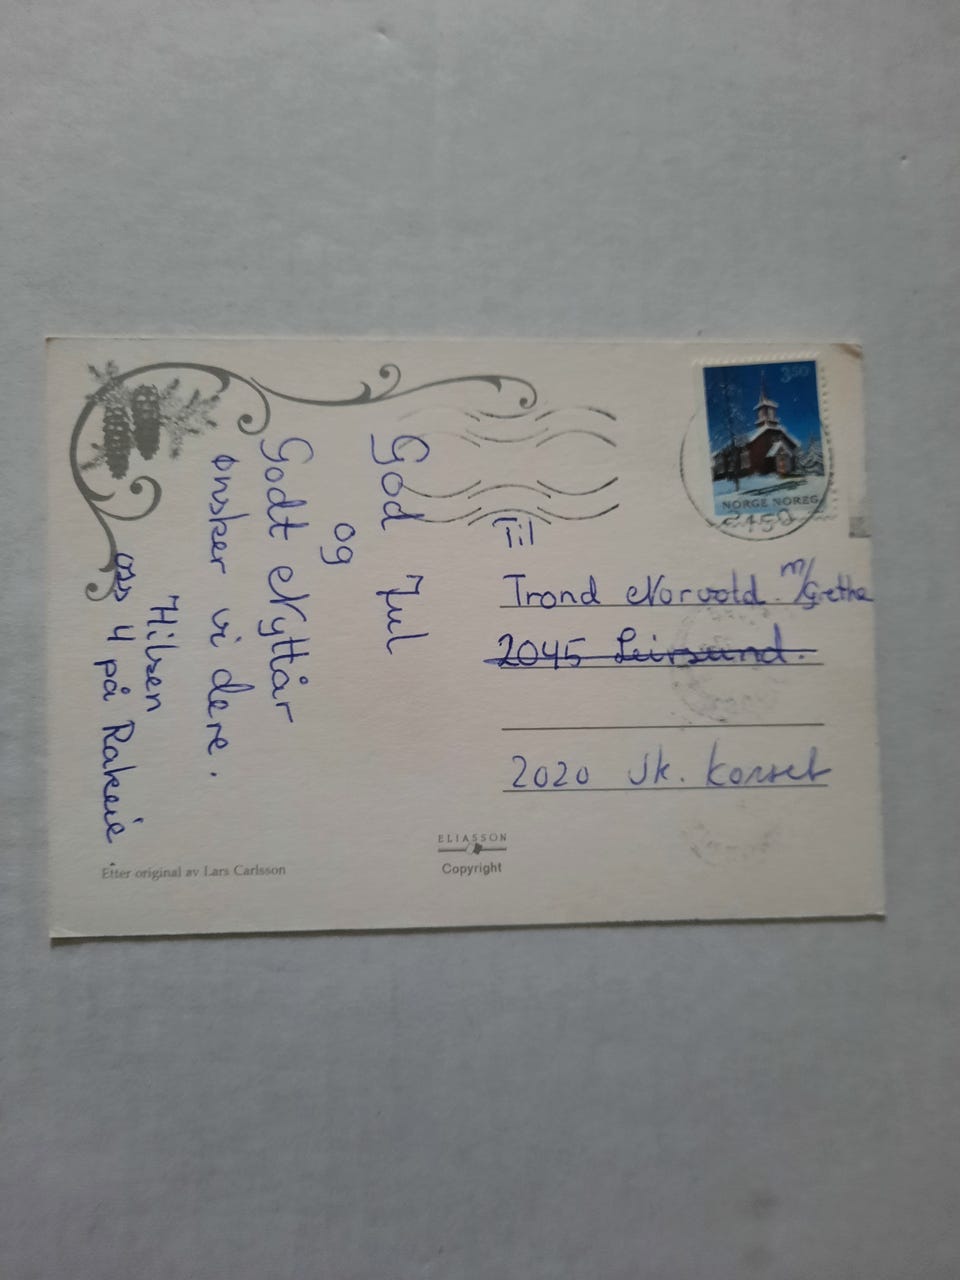 God Jul
og
Godt Nyttår
ønsker vi dere.
Hilsen
oss 4 på Rakeie
Efter original av Lars Carlsson
ELIASSON
Copyright
350
NORGE NOREG
2150
Til
Trond Norvold. m/Grethe
2045 Leirsund.
2020 Sk. Korset